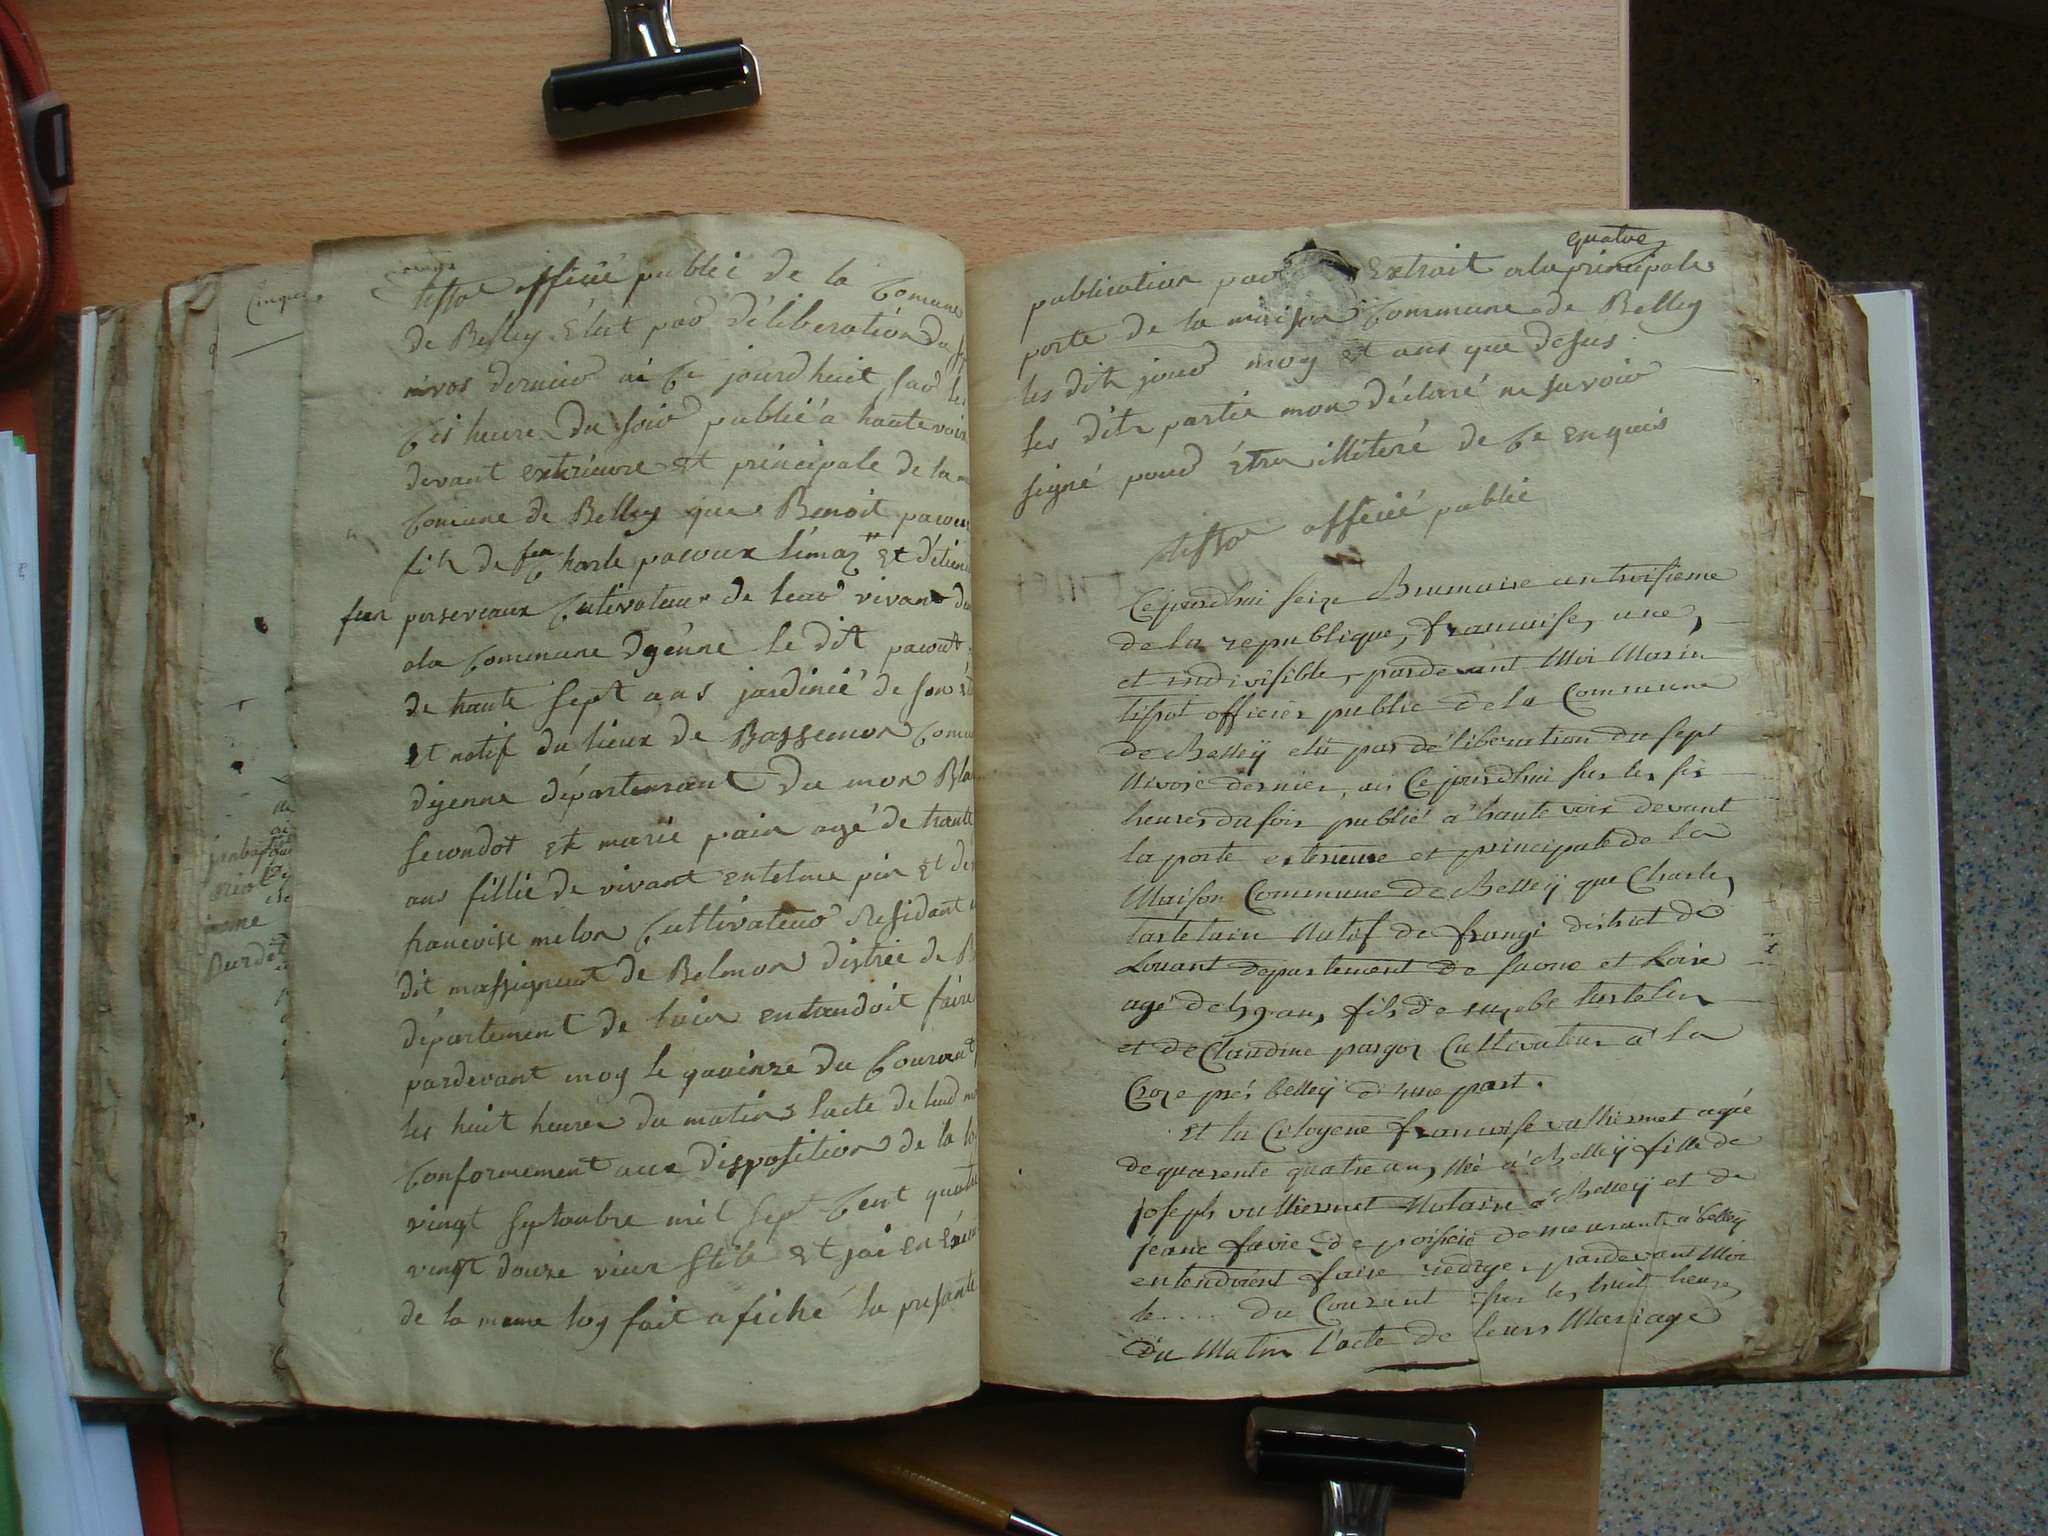 Cinque
tissot officié public de la Comune
de Belley Elut par déliberation du
nivos dernier ai Ce jourdhuit sur les
sis heure du soir publié a haute voix
devant exterieure et principale de la
Comune de Belley que Benoit pacoux
fih de feu Charle pacoux limaz et d'étiene
feu perserveaux Cutivateur de leur vivant
ala Commune dyénne le dit pacout
de trante sept ans jardinié de son
et natif du lieux de Bassemon Comu
dyenne département du mon Bla
secondot et marie pain agé de trante
ans fillie de vivant entelme pin et de
francoise melon Cultivateur Residant
dit massigneut de Belmon distric de B
département de lain entandoit faire
pardevant moy le quainze du Courant
les huit heures du matins lacte de leud
Conformement aux disposition de la lo
vingt septanbre mil sept Cent quatre
vingt douze vieux stile et jai en
de la meme loy fait afiché la presante
quatre
publication par Extrait ala principale
porte de la maison Commune de Belley
les dith jour moy et ans que desus
les dith partie mon déclaré ne savoir
signé pour étre illiteré de Ce enquis
tissot officié public
Cejourdhui seize Brumaire an troisieme
de la republique, francaise, une,
et indivisible, pardevant Moi Marin
tissot officier public de la Commune
de Belleÿ elu par deliberation du sept
Nivose dernier, ai Cejourdhui sur les six
heures du soir publié a haute voix devant
la porte exterieure et principale de la
Maison Commune de Belleÿ que Charle,
tastelain Natif de frangi district de
Louant departement de saone et Loire
agé de ans, fils de tastelin
et de Claudine pargoz Cultivateur a la
Croze prés belleÿ d'une part.
Et la Citoyene francoise vulliermet agée
de quarente quatre ans, Née a Belleÿ fille de
joseph vulliermet Notaire a Belleÿ et de
jeane favie de poisieu demeurante a belleÿ
entendoient faire rediger pardevant Moi
le .... du Courent sur les huit heures
du Matin l'acte de leurs Mariage